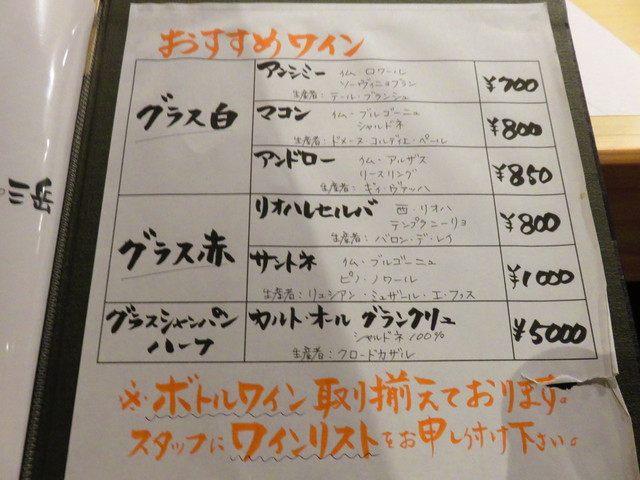 おすすめワイン
グラス白
アンシミー 仏・ロワール
ソーヴィニョンブラン
生産者：テール・ブランシュ
¥700
マコン 仏・ブルゴーニュ
シャルドネ
生産者：ドメーヌ・コルディエ・ペール
¥800
アンドロー 仏・アルザス
リースリング
生産者：ギィ・ヴァッハ
¥850
グラス赤
リオハレセルバ 西・リオハ
テンプラニーリョ
生産者：バロン・デ・レイ
¥800
サントネ 仏・ブルゴーニュ
ピノ・ノワール
生産者：リュシアン・ミュザール・エ・フィス
¥1000
グラスシャンパン
ハーフ
カルト・オール グランクリュ
シャルドネ100%
生産者：クロードカザル
¥5000
※ボトルワイン取り揃えております。
スタッフにワインリストをお申し付け下さい。
三岳